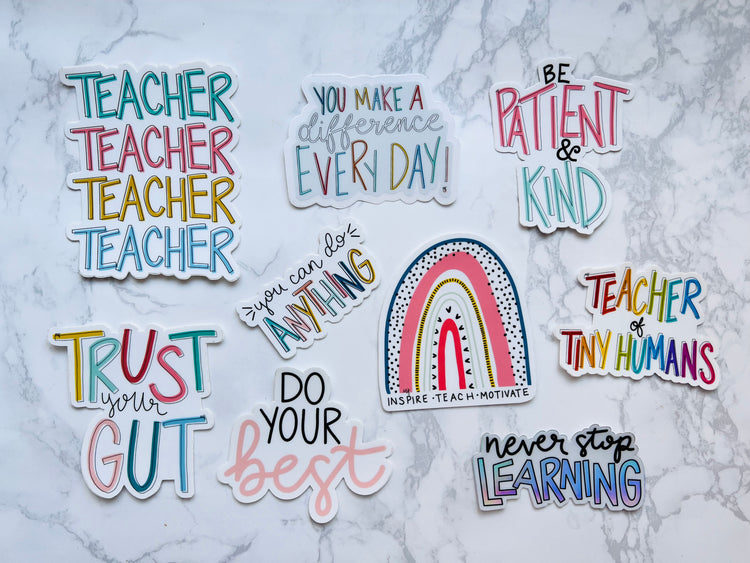 TEACHER
TEACHER
TEACHER
TEACHER
YOU MAKE A
difference
EVERY DAY!
BE
PATIENT
&
KIND
you can do
ANYTHING
INSPIRE · TEACH · MOTIVATE
TEACHER
of
TINY HUMANS
TRUST
your
GUT
DO
YOUR
best
never stop
LEARNING